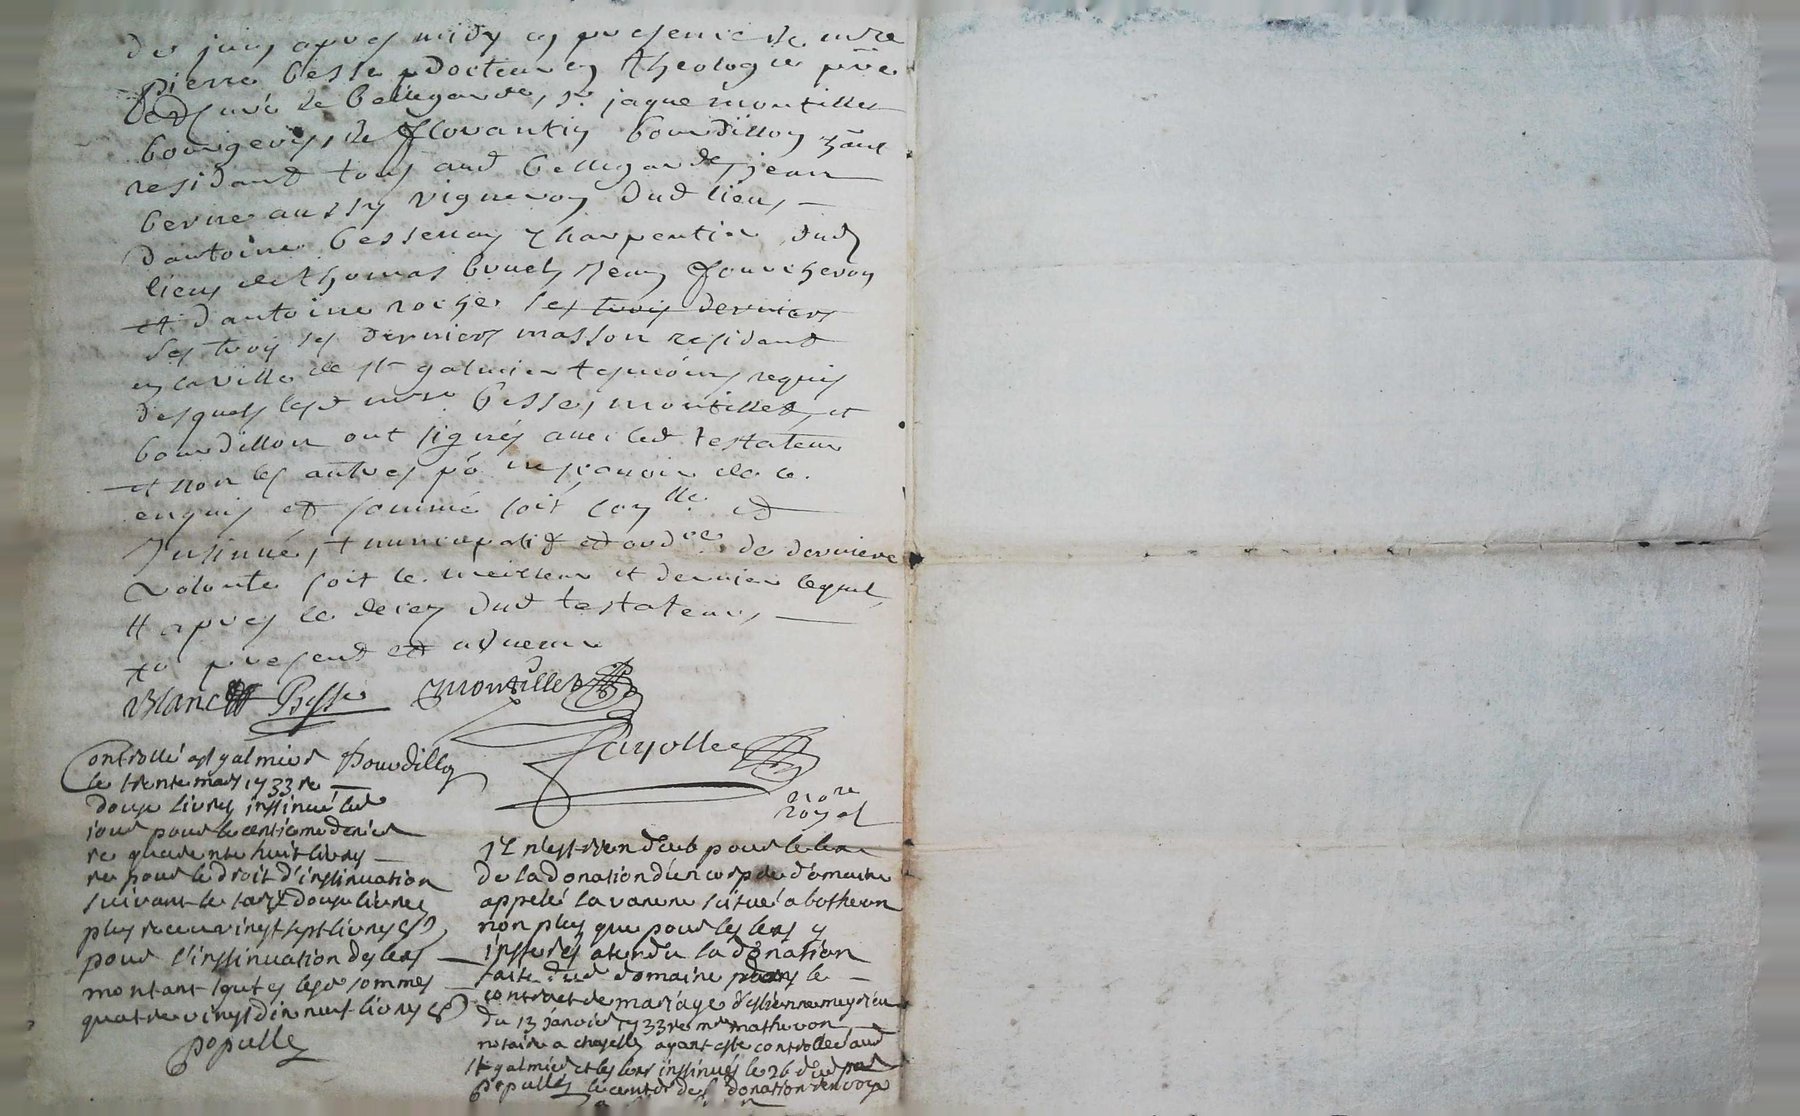 de juin apres midy en presence de mre
pierre besse docteur en theologie pbre
et curé de bellegarde, sr. jaque montillet
bourgeois, de florantin bourdillon
residant tous aud bellegarde, jean
berne aussy vigneron dud lieu,
d'antoine bessenay charpentier dud
lieu de thomas brunel, Jean foucheron
et d'antoine roche les trois derniers
les trois derniers masson residant
en la ville de st galmier tesmoins requis
desquels lesd mre besse, montillet, et
bourdillon ont signés avec led testateur
et non les autres po. ne scavoir de ce
enquis et sommé soit conlle. et
Insinué, + nuncupatif et ordce. de derniere
volonte soit le meilleur et dernier lequel
++ apres le deces dud testateur,
present et advenir
Blanc Besse Montillet
Bourdillon Fayolle
nore
royal
Controllé a st galmier
le trente mars 1733 re
douze livres insinué led
jour pour le centieme denier
re quarente huit livres
re pour le droit d'insinuation
suivant le tarif douze livres
plus receu vingt sept livres
pour l'insinuation des legs
montant toutes lesd sommes
quatre vingt dix neuf livres
populle
Il n'est rien deub pour le legs
de la donation d'un corps de domaine
appelé la varenne situé a botheon
non plus que pour les legs y
inserés atendu la donation
faite dud domaine dans le
contract de mariage d'estienne meyrieu
du 13 janvier 1733 re mre mathevon
notaire a chazelle ayant esté controllé aud
st galmier et les legs insinués le 26 dud par
populle, le centie de donation renvoyé